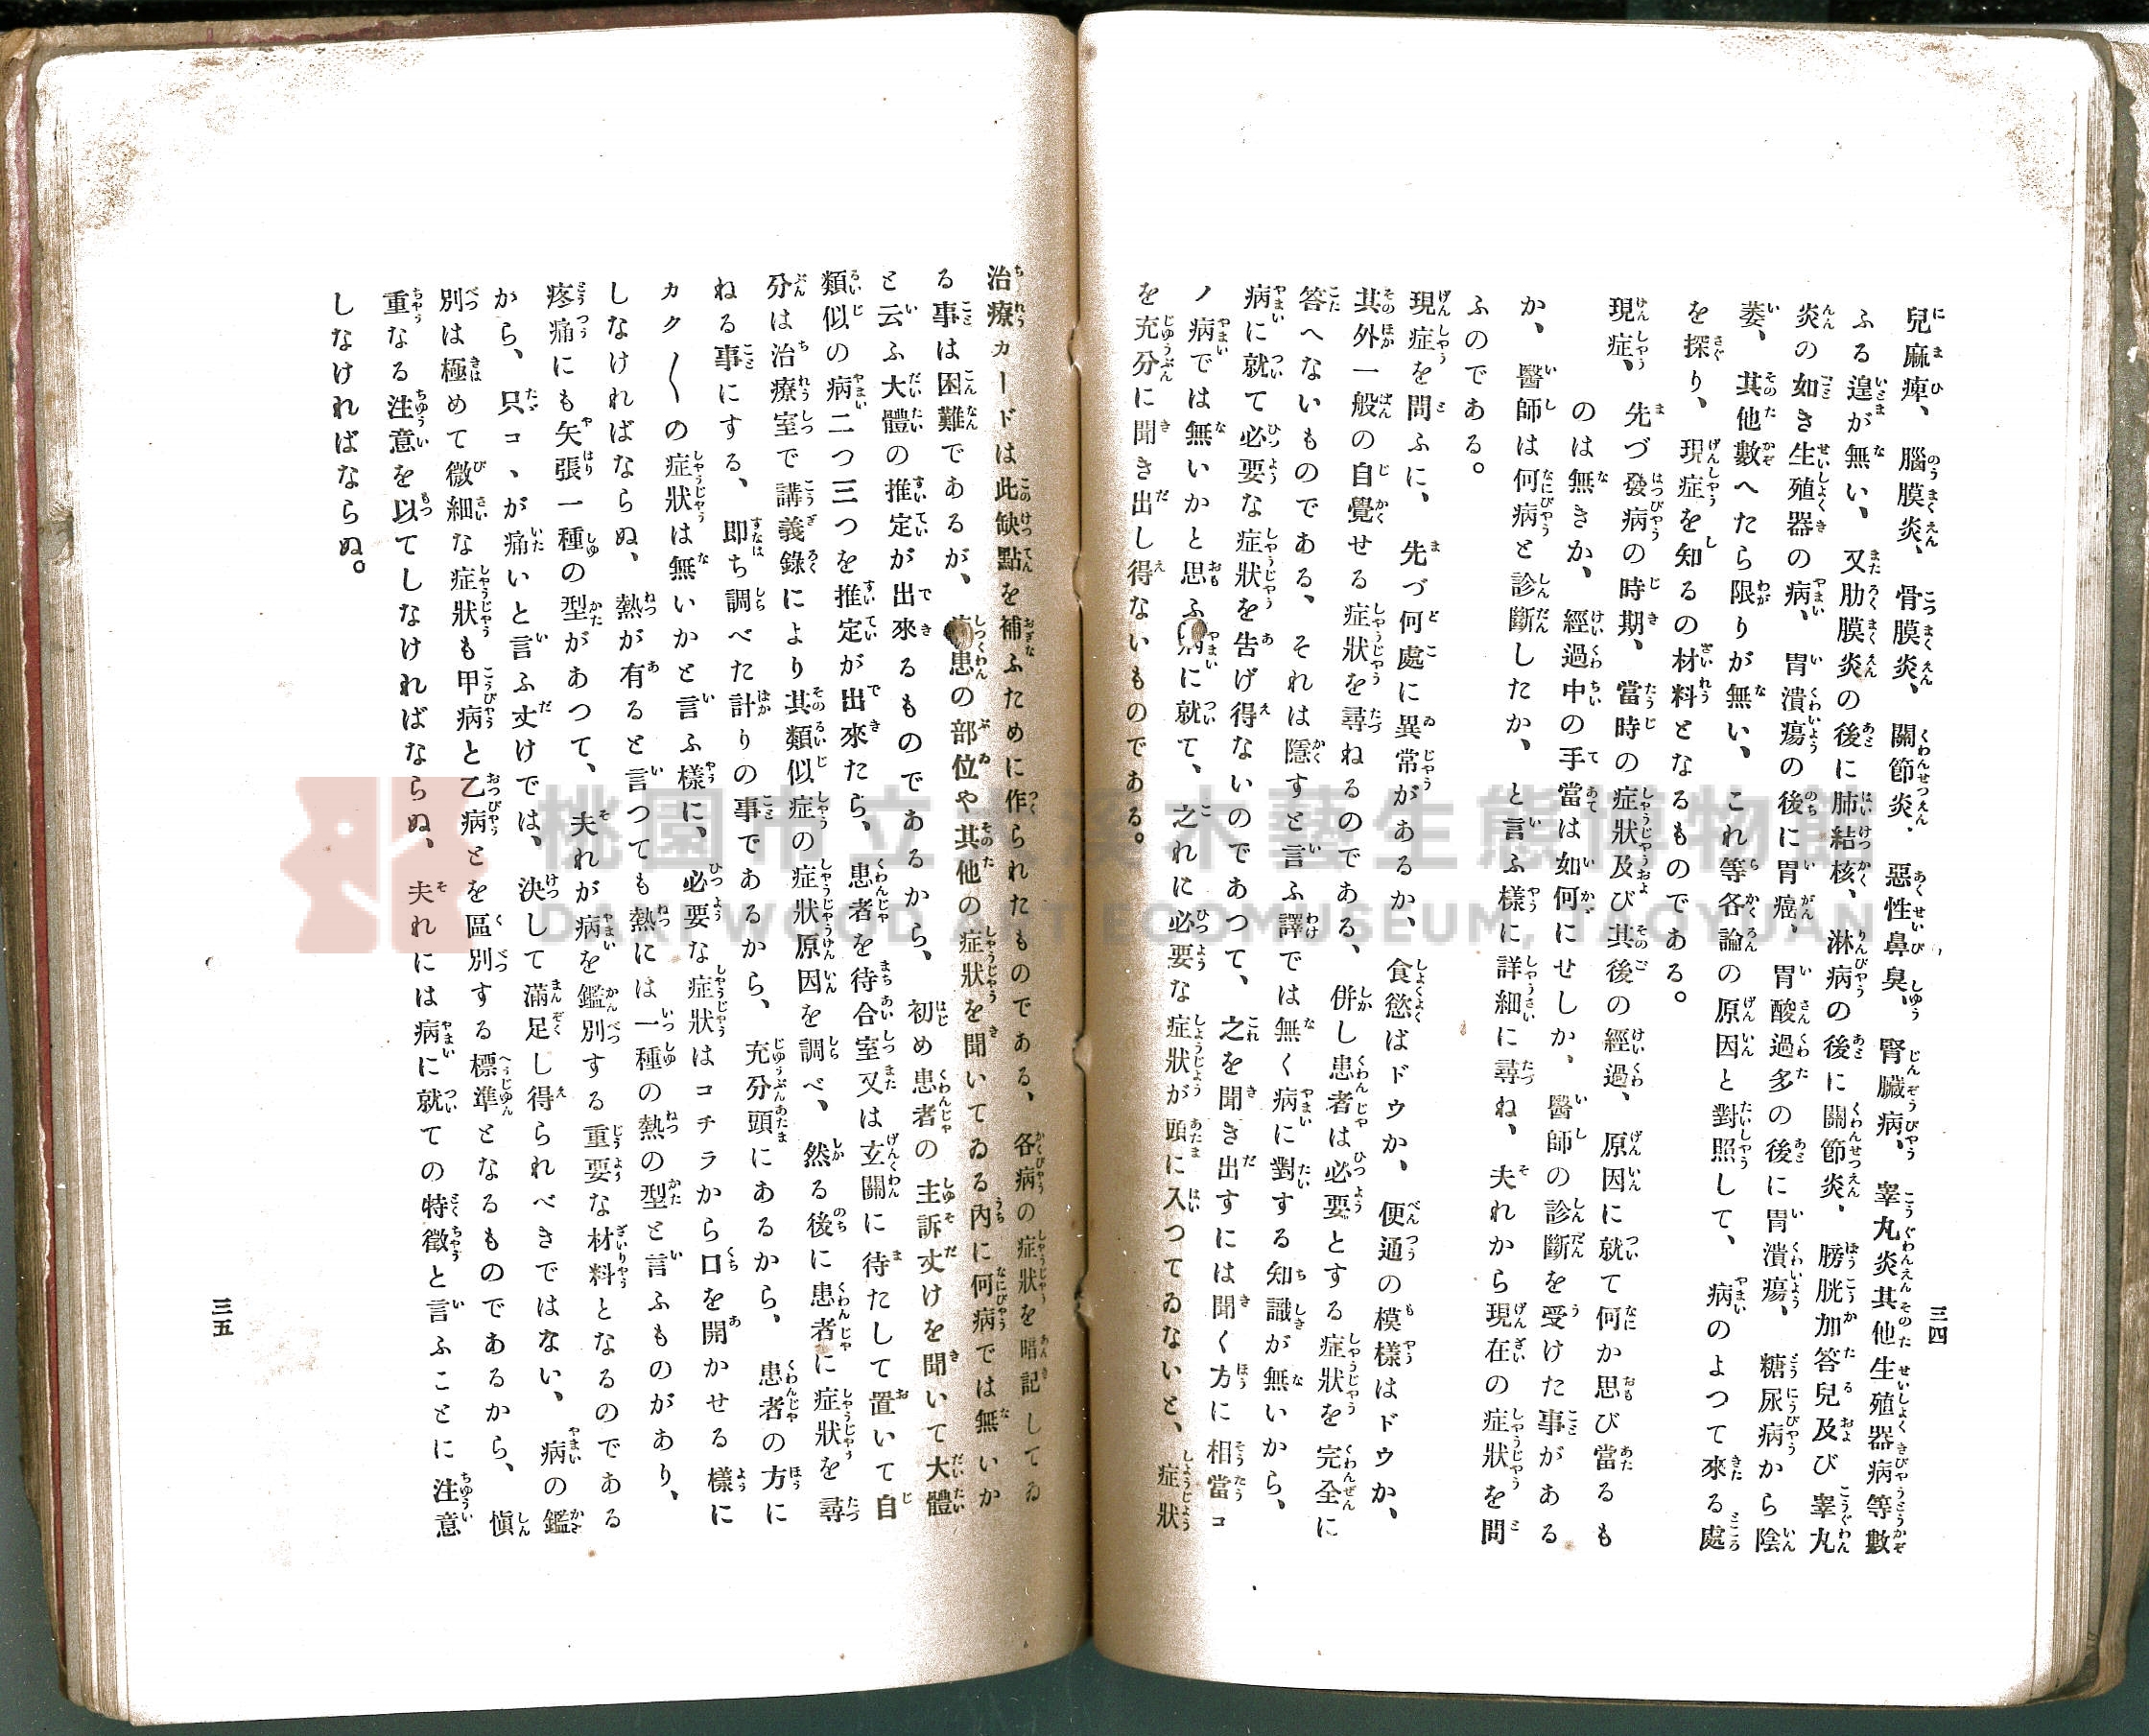 三四
兒麻痺、腦膜炎、骨膜炎、關節炎、惡性鼻臭、腎臟病、睾丸炎其他生殖器病等數
ふる遑が無い、又肋膜炎の後に肺結核、淋病の後に關節炎、膀胱加答兒及び睾丸
炎の如き生殖器の病、胃潰瘍の後に胃癌、胃酸過多の後に胃潰瘍、糖尿病から陰
萎、其他數へたら限りが無い、これ等各論の原因と對照して、病のよつて來る處
を探り、現症を知るの材料となるものである。
現症、先づ發病の時期、當時の症狀及び其後の經過、原因に就て何か思び當るも
のは無きか、經過中の手當は如何にせしか、醫師の診斷を受けた事がある
か、醫師は何病と診斷したか、と言ふ樣に詳細に尋ね、夫れから現在の症狀を問
ふのである。
現症を問ふに、先づ何處に異常があるか、食慾ばドウか、便通の模樣はドウか、
其外一般の自覺せる症狀を尋ねるのである、併し患者は必要とする症狀を完全に
答へないものである、それは隱すと言ふ譯では無く病に對する知識が無いから、
病に就て必要な症狀を告げ得ないのであつて、之を聞き出すには聞く方に相當コ
ノ病では無いかと思ふ病に就て、之れに必要な症狀が頭に入つてゐないと、症狀
を充分に聞き出し得ないものである。
治療カードは此缺點を補ふために作られたものである、各病の症狀を暗記してゐ
る事は困難であるが、患の部位や其他の症狀を聞いてゐる內に何病では無いか
と云ふ大體の推定が出來るものであるから、初め患者の主訴丈けを聞いて大體
類似の病二つ三つを推定が出來たら、患者を待合室又は玄關に待たして置いて自
分は治療室で講義錄により其類似症の症狀原因を調べ、然る後に患者に症狀を尋
ねる事にする、卽ち調べた計りの事であるから、充分頭にあるから、患者の方に
カク〱の症狀は無いかと言ふ樣に、必要な症狀はコチラから口を開かせる樣に
しなければならぬ、熱が有ると言つても熱には一種の熱の型と言ふものがあり、
疼痛にも矢張一種の型があつて、夫れが病を鑑別する重要な材料となるのである
から、只コヽが痛いと言ふ丈けでは、決して滿足し得られべきではない、病の鑑
別は極めて微細な症狀も甲病と乙病とを區別する標準となるものであるから、愼
重なる注意を以てしなければならぬ、夫れには病に就ての特徵と言ふことに注意
しなければならぬ。
三五
桃園市立大溪木藝生態博物館
DAXI WOOD ART ECOMUSEUM, TAOYUAN